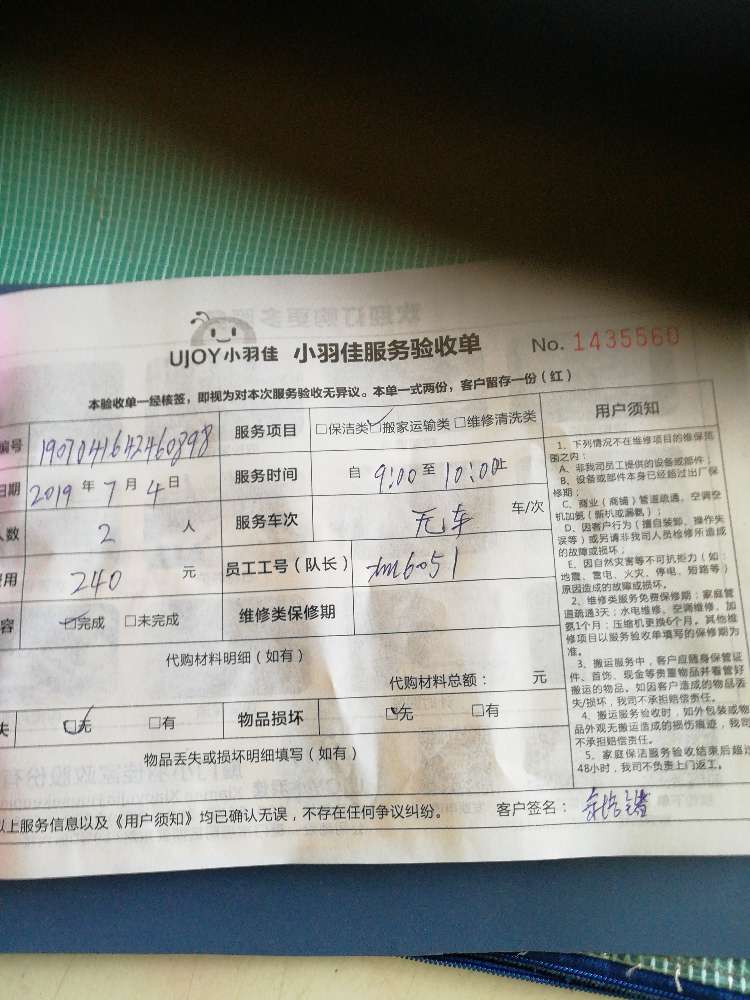 UJOY小羽佳 小羽佳服务验收单 No. 1435560
本验收单一经核签，即视为对本次服务验收无异议。本单一式两份，客户留存一份（红）
编号 1907041642460898 服务项目 □保洁类 □搬家运输类 □维修清洗类
日期 2019 年 7 月 4 日 服务时间 自 9:00 至 10:00止
人数 2 人 服务车次 无车 车/次
费用 240 元 员工工号（队长） xm6051
容 □完成 □未完成 维修类保修期
代购材料明细（如有）
代购材料总额： 元
失 □无 □有 物品损坏 □无 □有
物品丢失或损坏明细填写（如有）
以上服务信息以及《用户须知》均已确认无误，不存在任何争议纠纷。 客户签名：
用户须知
1、下列情况不在维修项目的维保范
围之内：
A、非我司员工提供的设备或部件；
B、设备或部件本身已经超过出厂保
修期；
C、商业（商铺）管道疏通，空调空
机加氨（新机或漏氨）；
D、因客户行为（擅自装卸、操作失
误等）或另请非我司人员检修所造成
的故障或损坏；
E、因自然灾害等不可抗拒力（如：
地震、雷电、火灾、停电、短路等）
原因造成的故障或损坏。
2、维修类服务免费保修期：家庭管
道疏通3天；水电维修、空调维修、加
氨1个月；压缩机更换6个月。其他维
修项目以服务验收单填写的保修期为
准。
3、搬运服务中，客户应随身保管证
件、首饰、现金等贵重物品并看管好
搬运的物品。如因客户造成的物品丢
失/损坏，我司不承担赔偿责任。
4、搬运服务验收时，如外包装或物
品外观无搬运造成的损伤痕迹，我司
不承担赔偿责任。
5、家庭保洁服务验收结束后超过
48小时，我司不负责上门返工。